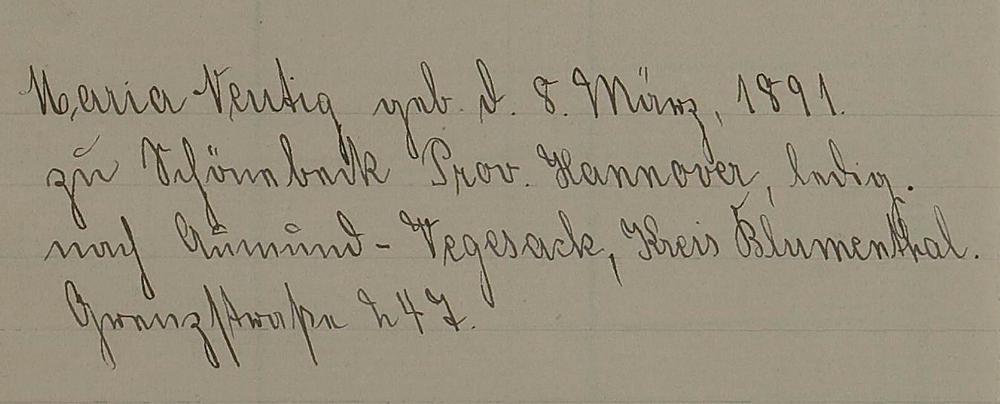 Maria Ventig geb. d. 8. März, 1891.
zu Schönebeck Prov. Hannover, ledig.
nach Aumund-Vegesack, Kreis Blumenthal.
Grenzstraße 247.